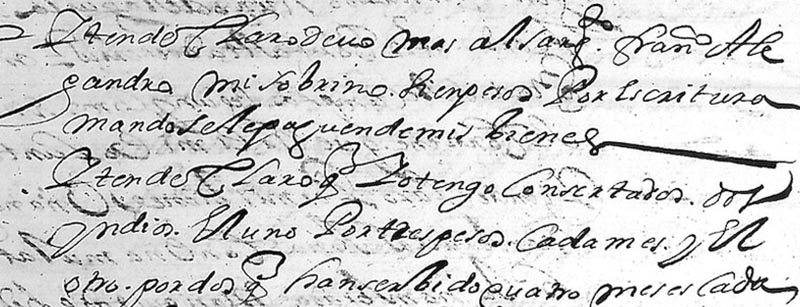 Yten de Claro devo mas al sarg.to fran.co Ale
gandro mi sobrino. sienpesos Por Escritura
mando se le paguen de mis bienes
Yten de Claro q Yo tengo Consertados. dos
yndios. El uno Por tres pesos. Cada mes. y El
otro. por dos q han serbido quatro meses Cada